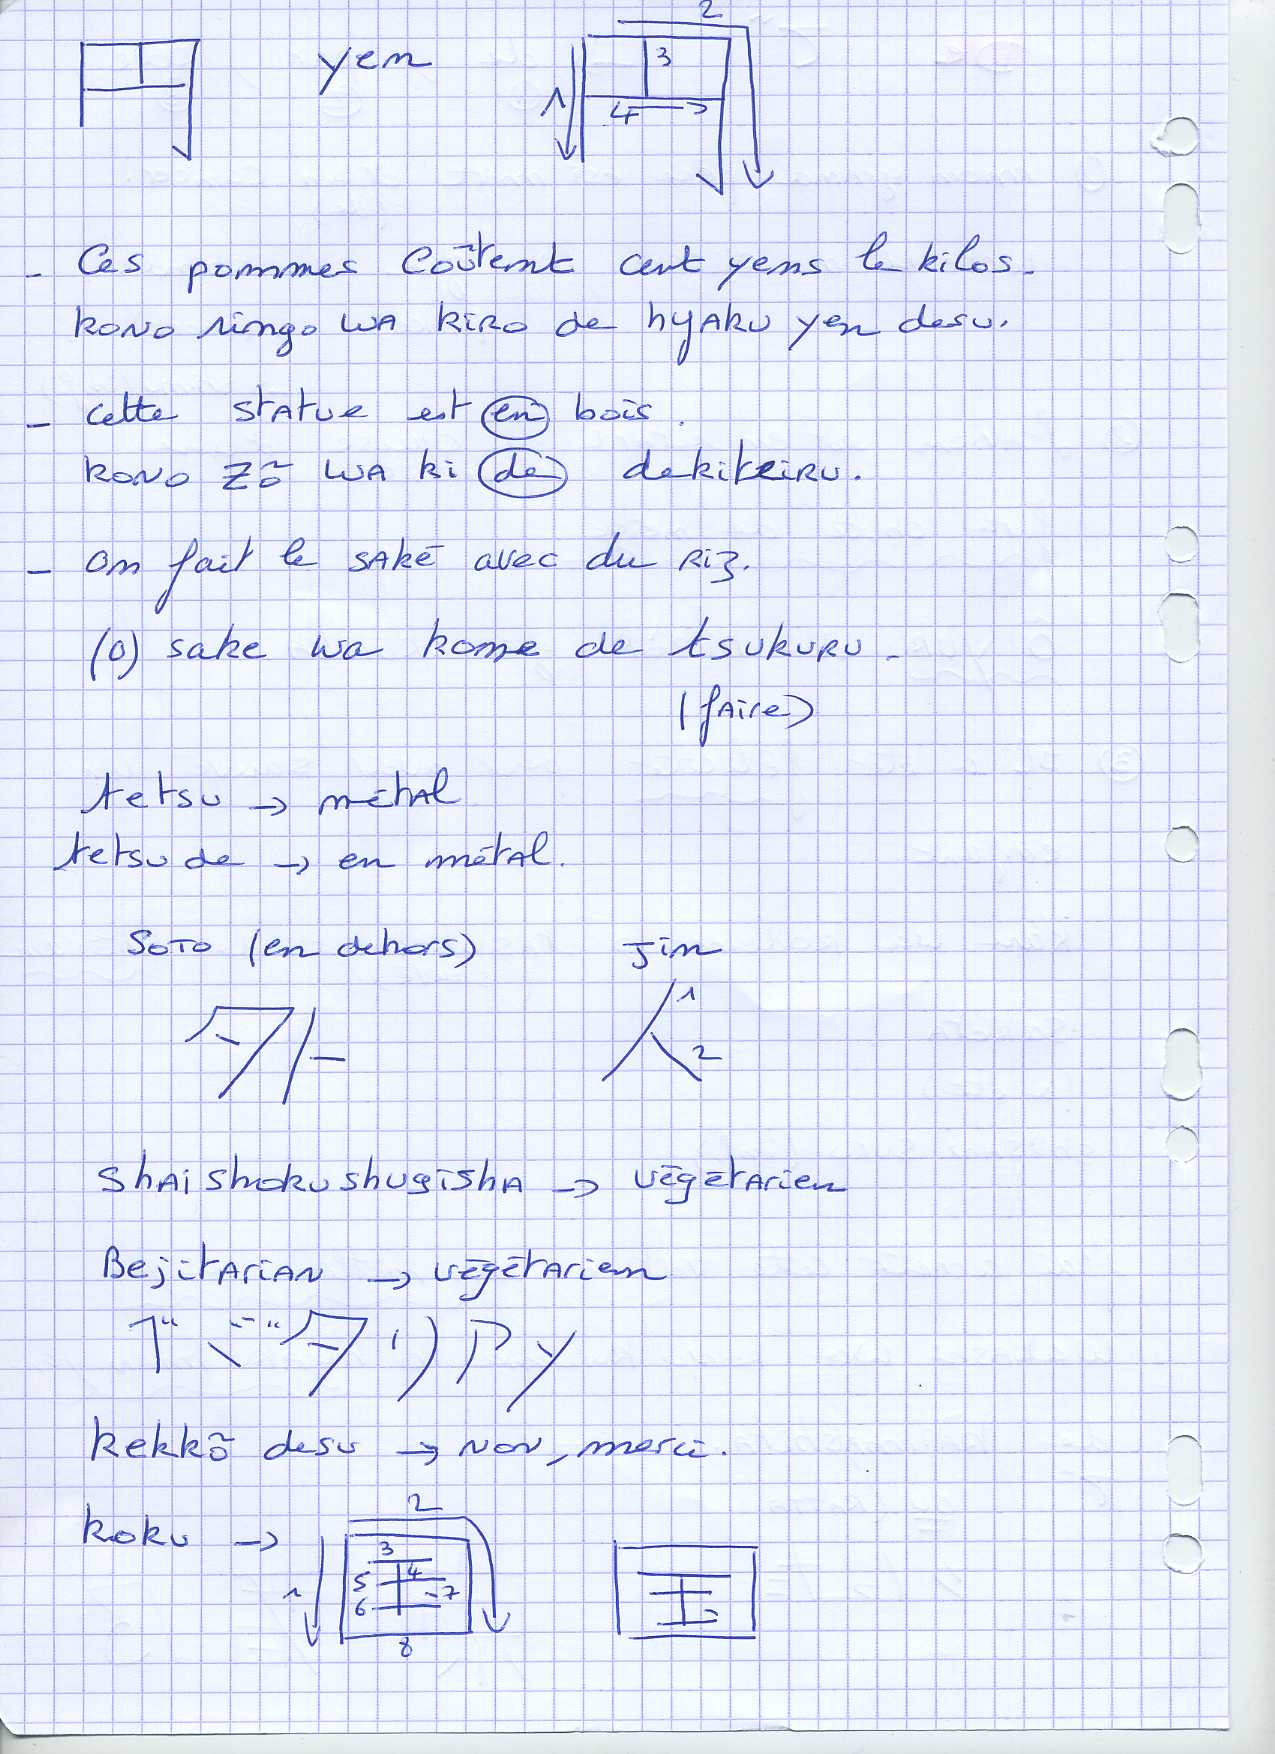 円 yen 2
1 3
4
- Ces pommes coûtent cent yens le kilos.
kono ringo wa kiro de hyaku yen desu.
- cette statue est en bois.
kono zō wa ki de dekiteiru.
- on fait le saké avec du riz.
(o) sake wa kome de tsukuru.
(faire)
tetsu → métal
tetsu de → en métal.
soto (en dehors) Jin
外 人 1
2
Shaishokushugisha → végétarien
Bejitarian → végétarien
ベジタリアン
kekkō desu → non, merci.
koku → 国 国
1 2 3 4 5 6 7 8